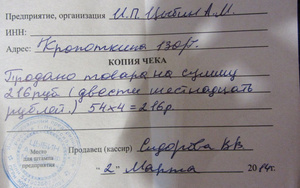 Предприятие, организация И.П. Цыбин А.М.
ИНН:
Адрес: Кропоткина 130/1.
КОПИЯ ЧЕКА
Продано товара на сумму
216 руб (двести шестнадцать
рублей.) 54х4=216р.
Продавец (кассир) Сидорова В.В
Место
для штампа
предприятия
"2" Марта 2014г.